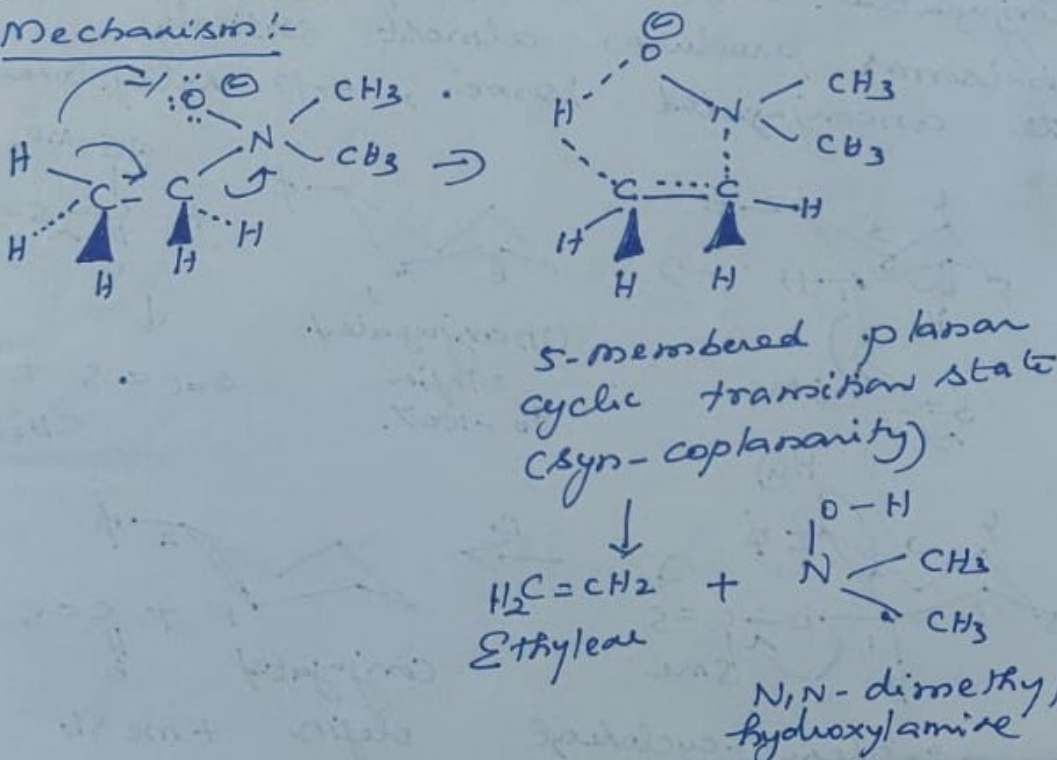 Mechanism:-
:Ö ⊖
CH3
N
CH3
H
C - C
H
H
H
H
⊖
O
H
N
CH3
CH3
C C
H
H
H
H
5-membered planar
cyclic transition state
(syn-coplanarity)
↓
H2C = CH2 +
Ethylene
O - H
N
CH3
CH3
N,N-dimethyl
hydroxylamine